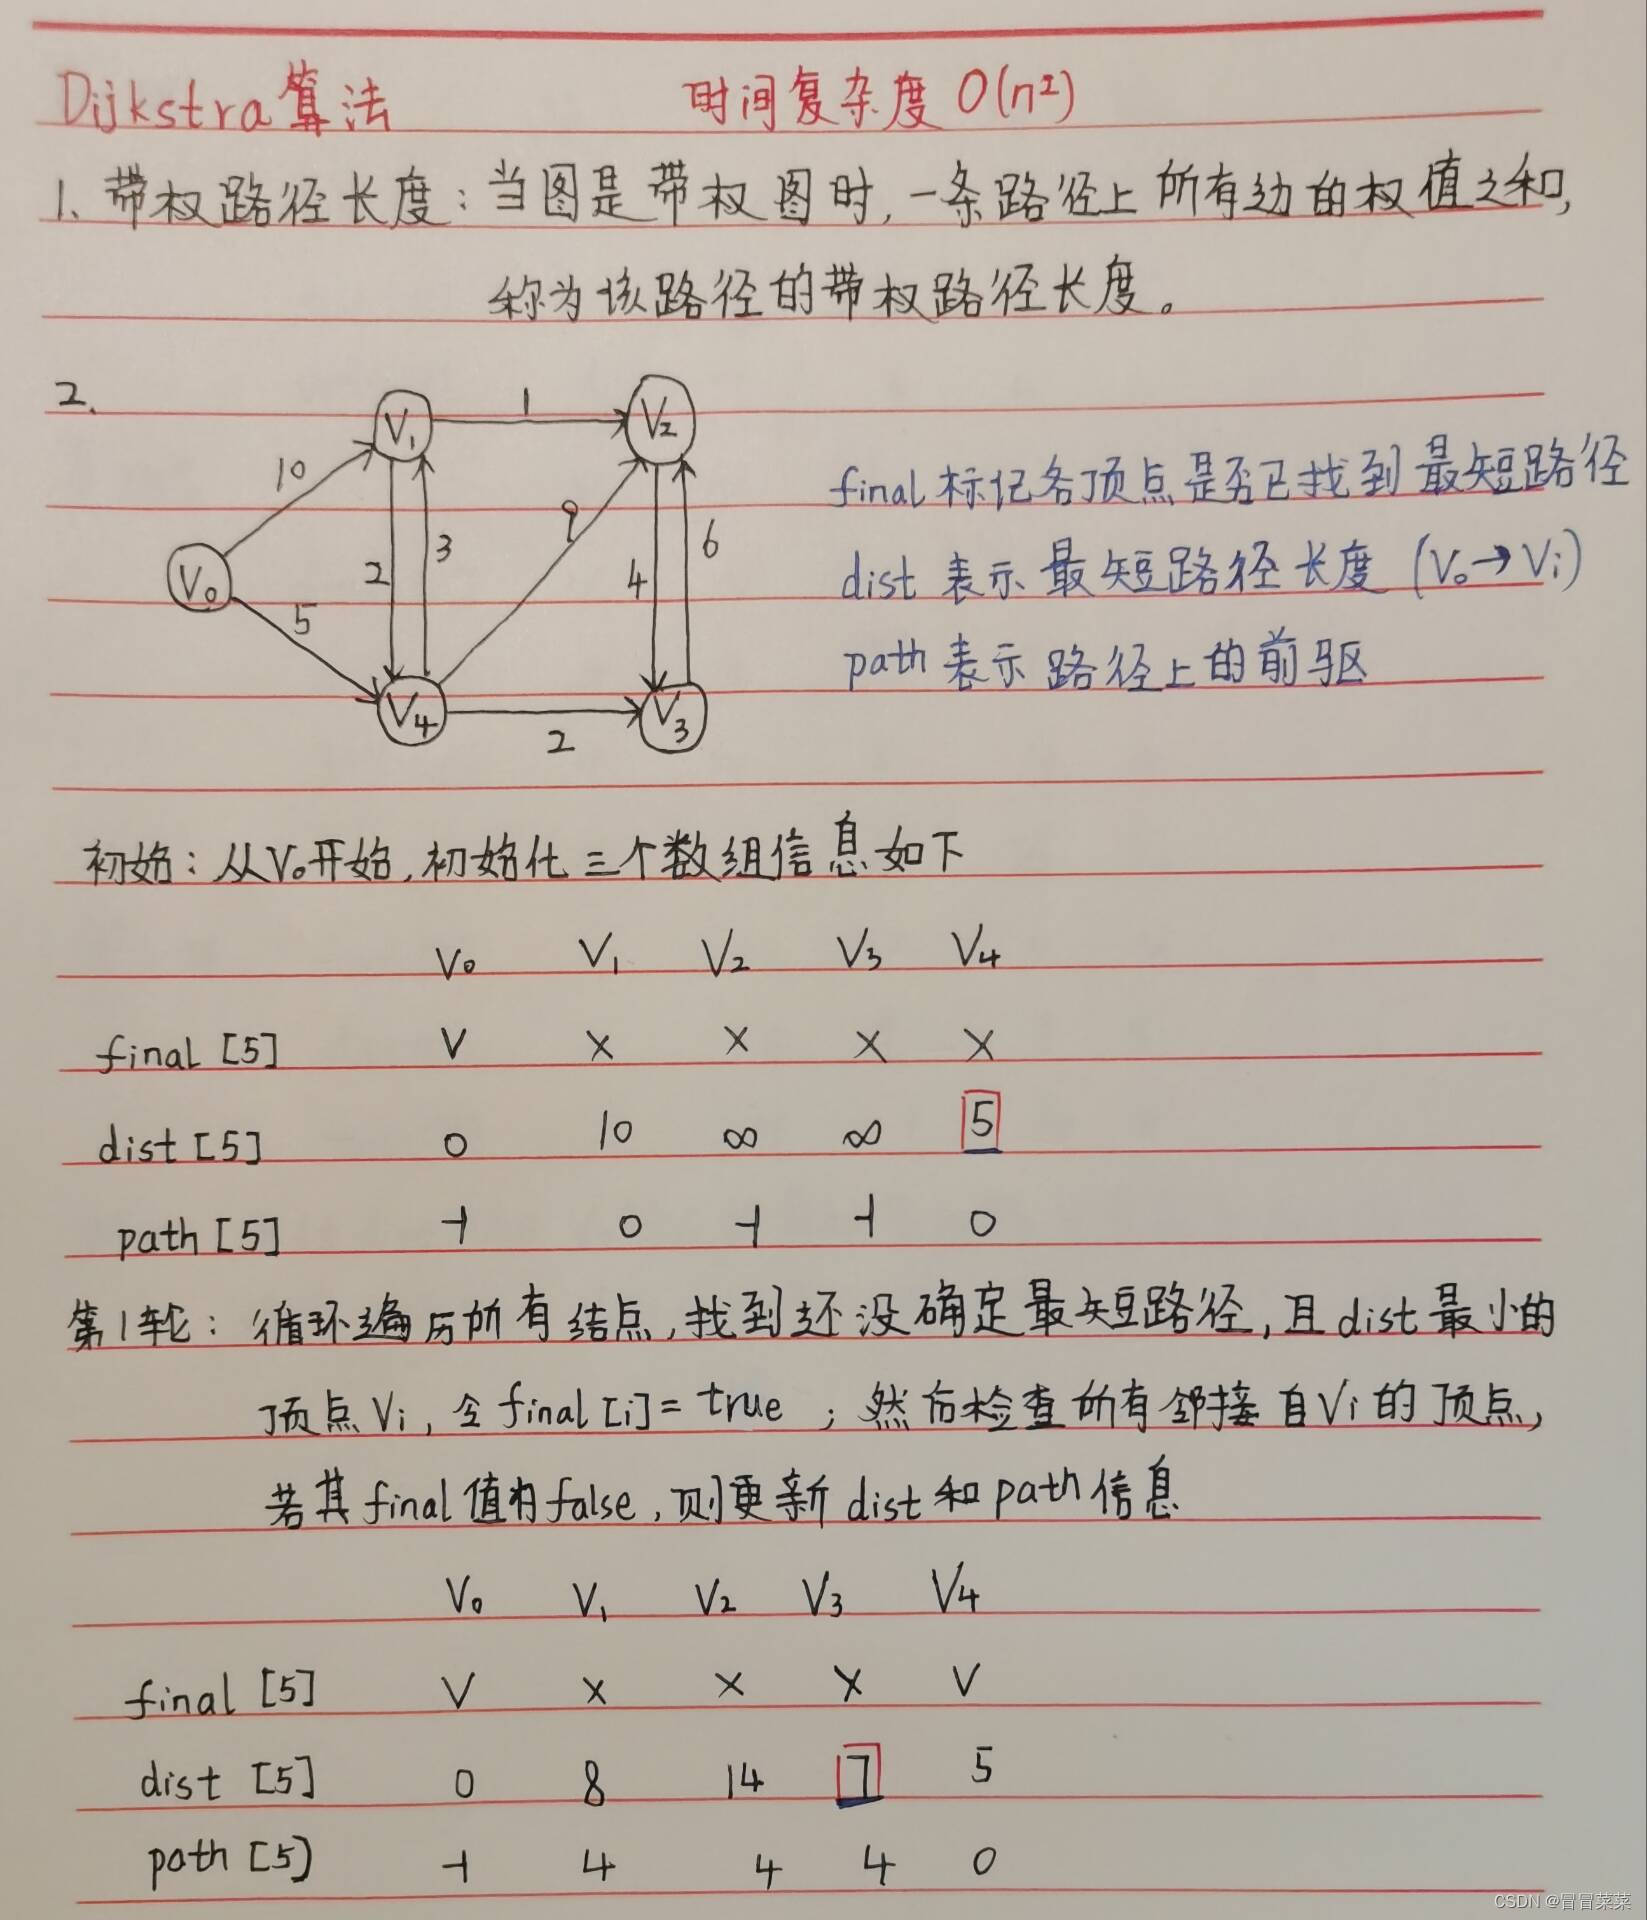 Dijkstra算法 时间复杂度 O(n²)
1、带权路径长度：当图是带权图时,一条路径上所有边的权值之和,
称为该路径的带权路径长度。
2、
V₁ 1 V₂
10
9
2 3 4 6
V₀
5
V₄ 2 V₃
final 标记各顶点是否已找到最短路径
dist 表示最短路径长度 (V₀→Vᵢ)
path 表示路径上的前驱
初始：从V₀开始,初始化三个数组信息如下
V₀ V₁ V₂ V₃ V₄
final [5] ∨ × × × ×
dist [5] 0 10 ∞ ∞ 5
path [5] -1 0 -1 -1 0
第1轮：循环遍历所有结点,找到还没确定最短路径,且dist最小的
顶点Vᵢ,令final[i]=true；然后检查所有邻接自Vᵢ的顶点,
若其final值为false,则更新dist和path信息
V₀ V₁ V₂ V₃ V₄
final [5] ∨ × × × ∨
dist [5] 0 8 14 7 5
path [5] -1 4 4 4 0
CSDN @冒冒菜菜